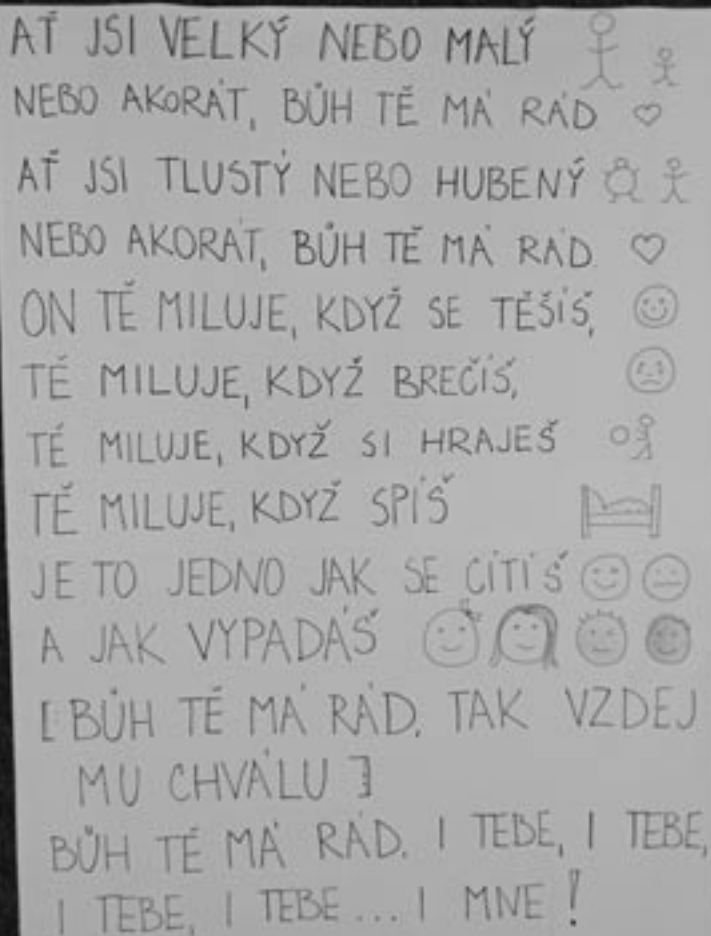 AŤ JSI VELKÝ NEBO MALÝ
NEBO AKORÁT, BŮH TĚ MÁ RÁD
AŤ JSI TLUSTÝ NEBO HUBENÝ
NEBO AKORÁT, BŮH TĚ MÁ RÁD.
ON TĚ MILUJE, KDYŽ SE TĚŠÍŠ,
TĚ MILUJE, KDYŽ BREČÍŠ,
TĚ MILUJE, KDYŽ SI HRAJEŠ
TĚ MILUJE, KDYŽ SPÍŠ
JE TO JEDNO JAK SE CÍTÍŠ
A JAK VYPADÁŠ
[: BŮH TĚ MÁ RÁD, TAK VZDEJ
MU CHVÁLU :]
BŮH TĚ MÁ RÁD. I TEBE, I TEBE,
I TEBE, I TEBE... I MNE!